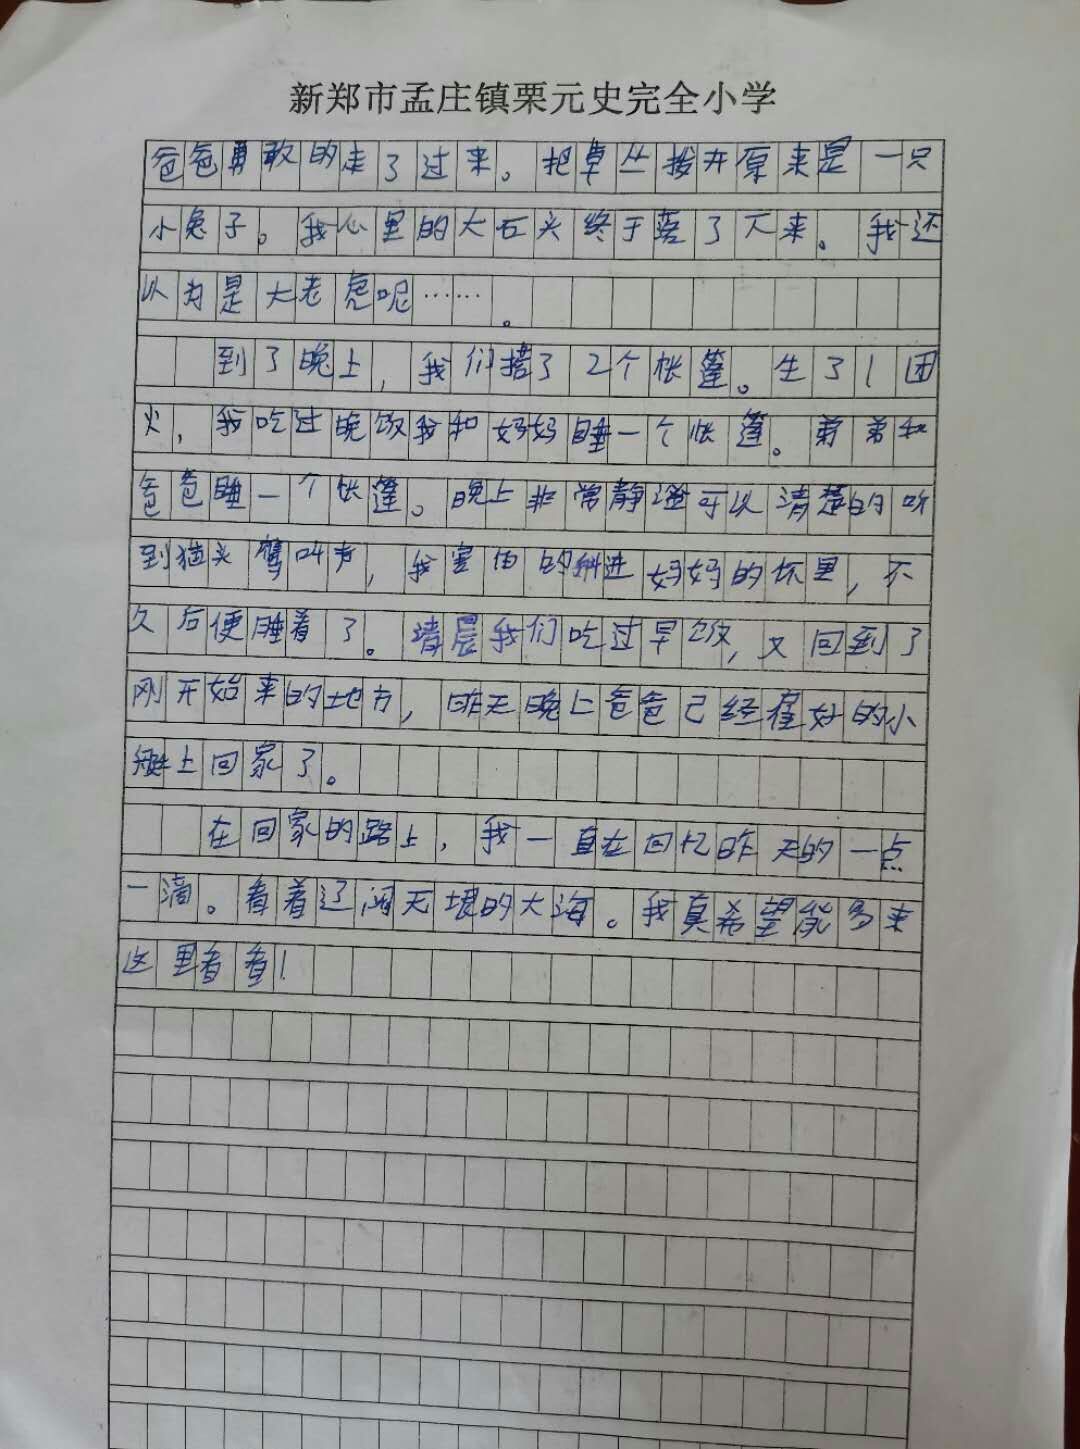 新郑市孟庄镇栗元史完全小学
爸爸勇敢的走了过来。把草丛拨开原来是一只
小兔子。我心里的大石头终于落了下来。我还
以为是大老虎呢……。
到了晚上，我们搭了2个帐篷。生了1团
火，我吃过晚饭我和妈妈睡一个帐篷。弟弟和
爸爸睡一个帐篷。晚上非常静谧可以清楚的听
到猫头鹰叫声，我害怕的躲进妈妈的怀里，不
久后便睡着了。清晨我们吃过早饭，又回到了
刚开始来的地方，昨天晚上爸爸已经 好的小
船上回家了。
在回家的路上，我一直在回忆昨天的一点
一滴。看着辽阔无垠的大海。我真希望能多来
这里看看！